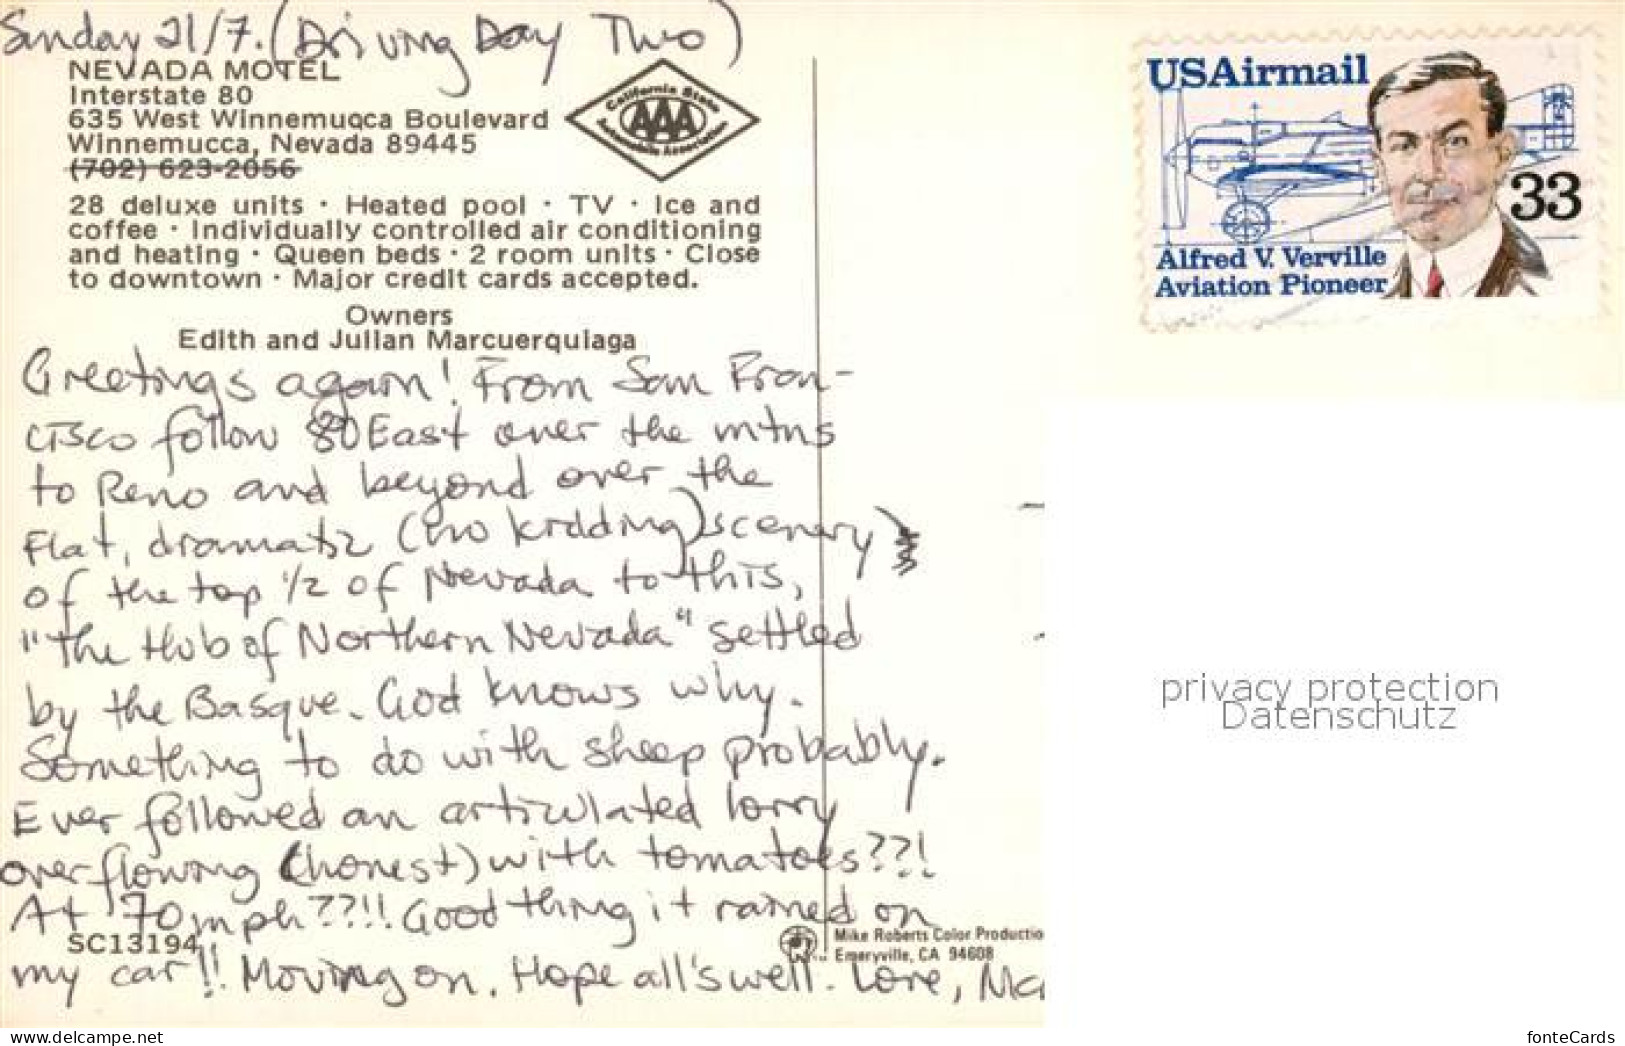 Sunday 21/7. (Driving Day Two)
NEVADA MOTEL
Interstate 80
635 West Winnemuqca Boulevard
Winnemucca, Nevada 89445
(702) 623-2056
California State
AAA
Automobile Association
28 deluxe units · Heated pool · TV · Ice and
coffee · Individually controlled air conditioning
and heating · Queen beds · 2 room units · Close
to downtown · Major credit cards accepted.
Owners
Edith and Julian Marcuerquiaga
Greetings again! From San Fran-
cisco follow 80 East over the mtns
to Reno and beyond over the
Flat, dramatic (no kidding) scenery
of the top 1/2 of Nevada to this,
"the Hub of Northern Nevada" settled
by the Basque. God knows why.
Something to do with sheep probably.
Ever followed an articulated lorry
overflowing (honest) with tomatoes??!
At 70 mph??!! Good thing it rained on
my car!! Moving on. Hope all's well. Love, Ma
SC13194
Mike Roberts Color Productio
Emeryville, CA 94608
USAirmail
33
Alfred V. Verville
Aviation Pioneer
privacy protection
Datenschutz
www.delcampe.net
fonteCards